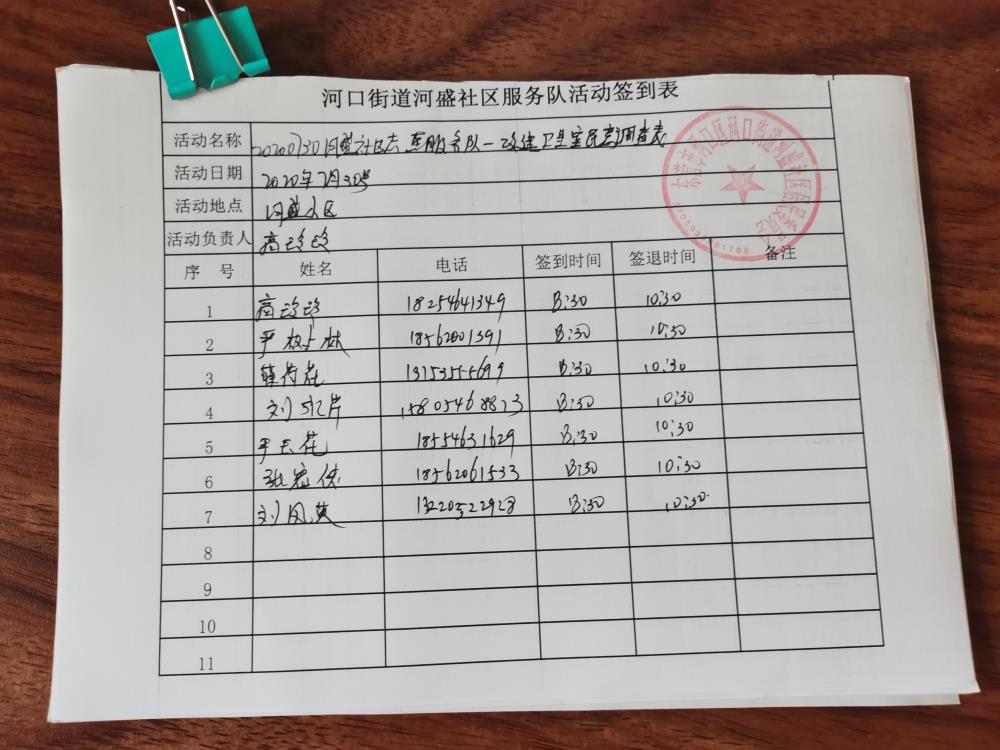 河口街道河盛社区服务队活动签到表
活动名称 20200730河盛社区志愿服务队一改建卫生室民意调查表
活动日期 2020年7月30号
活动地点 河盛小区
活动负责人 高玲玲
序 号 姓名 电话 签到时间 签退时间 备注
1 高玲玲 18254641349 8:30 10:30
2 18562001391 8:30 10:30
3 薛荷花 8:30 10:30
4 刘冰片 15805468873 8:30 10:30
5 18554631629 8:30 10:30
6 张宏侠 18562061533 8:30 10:30
7 刘凤英 13220522928 8:30 10:30
8
9
10
11